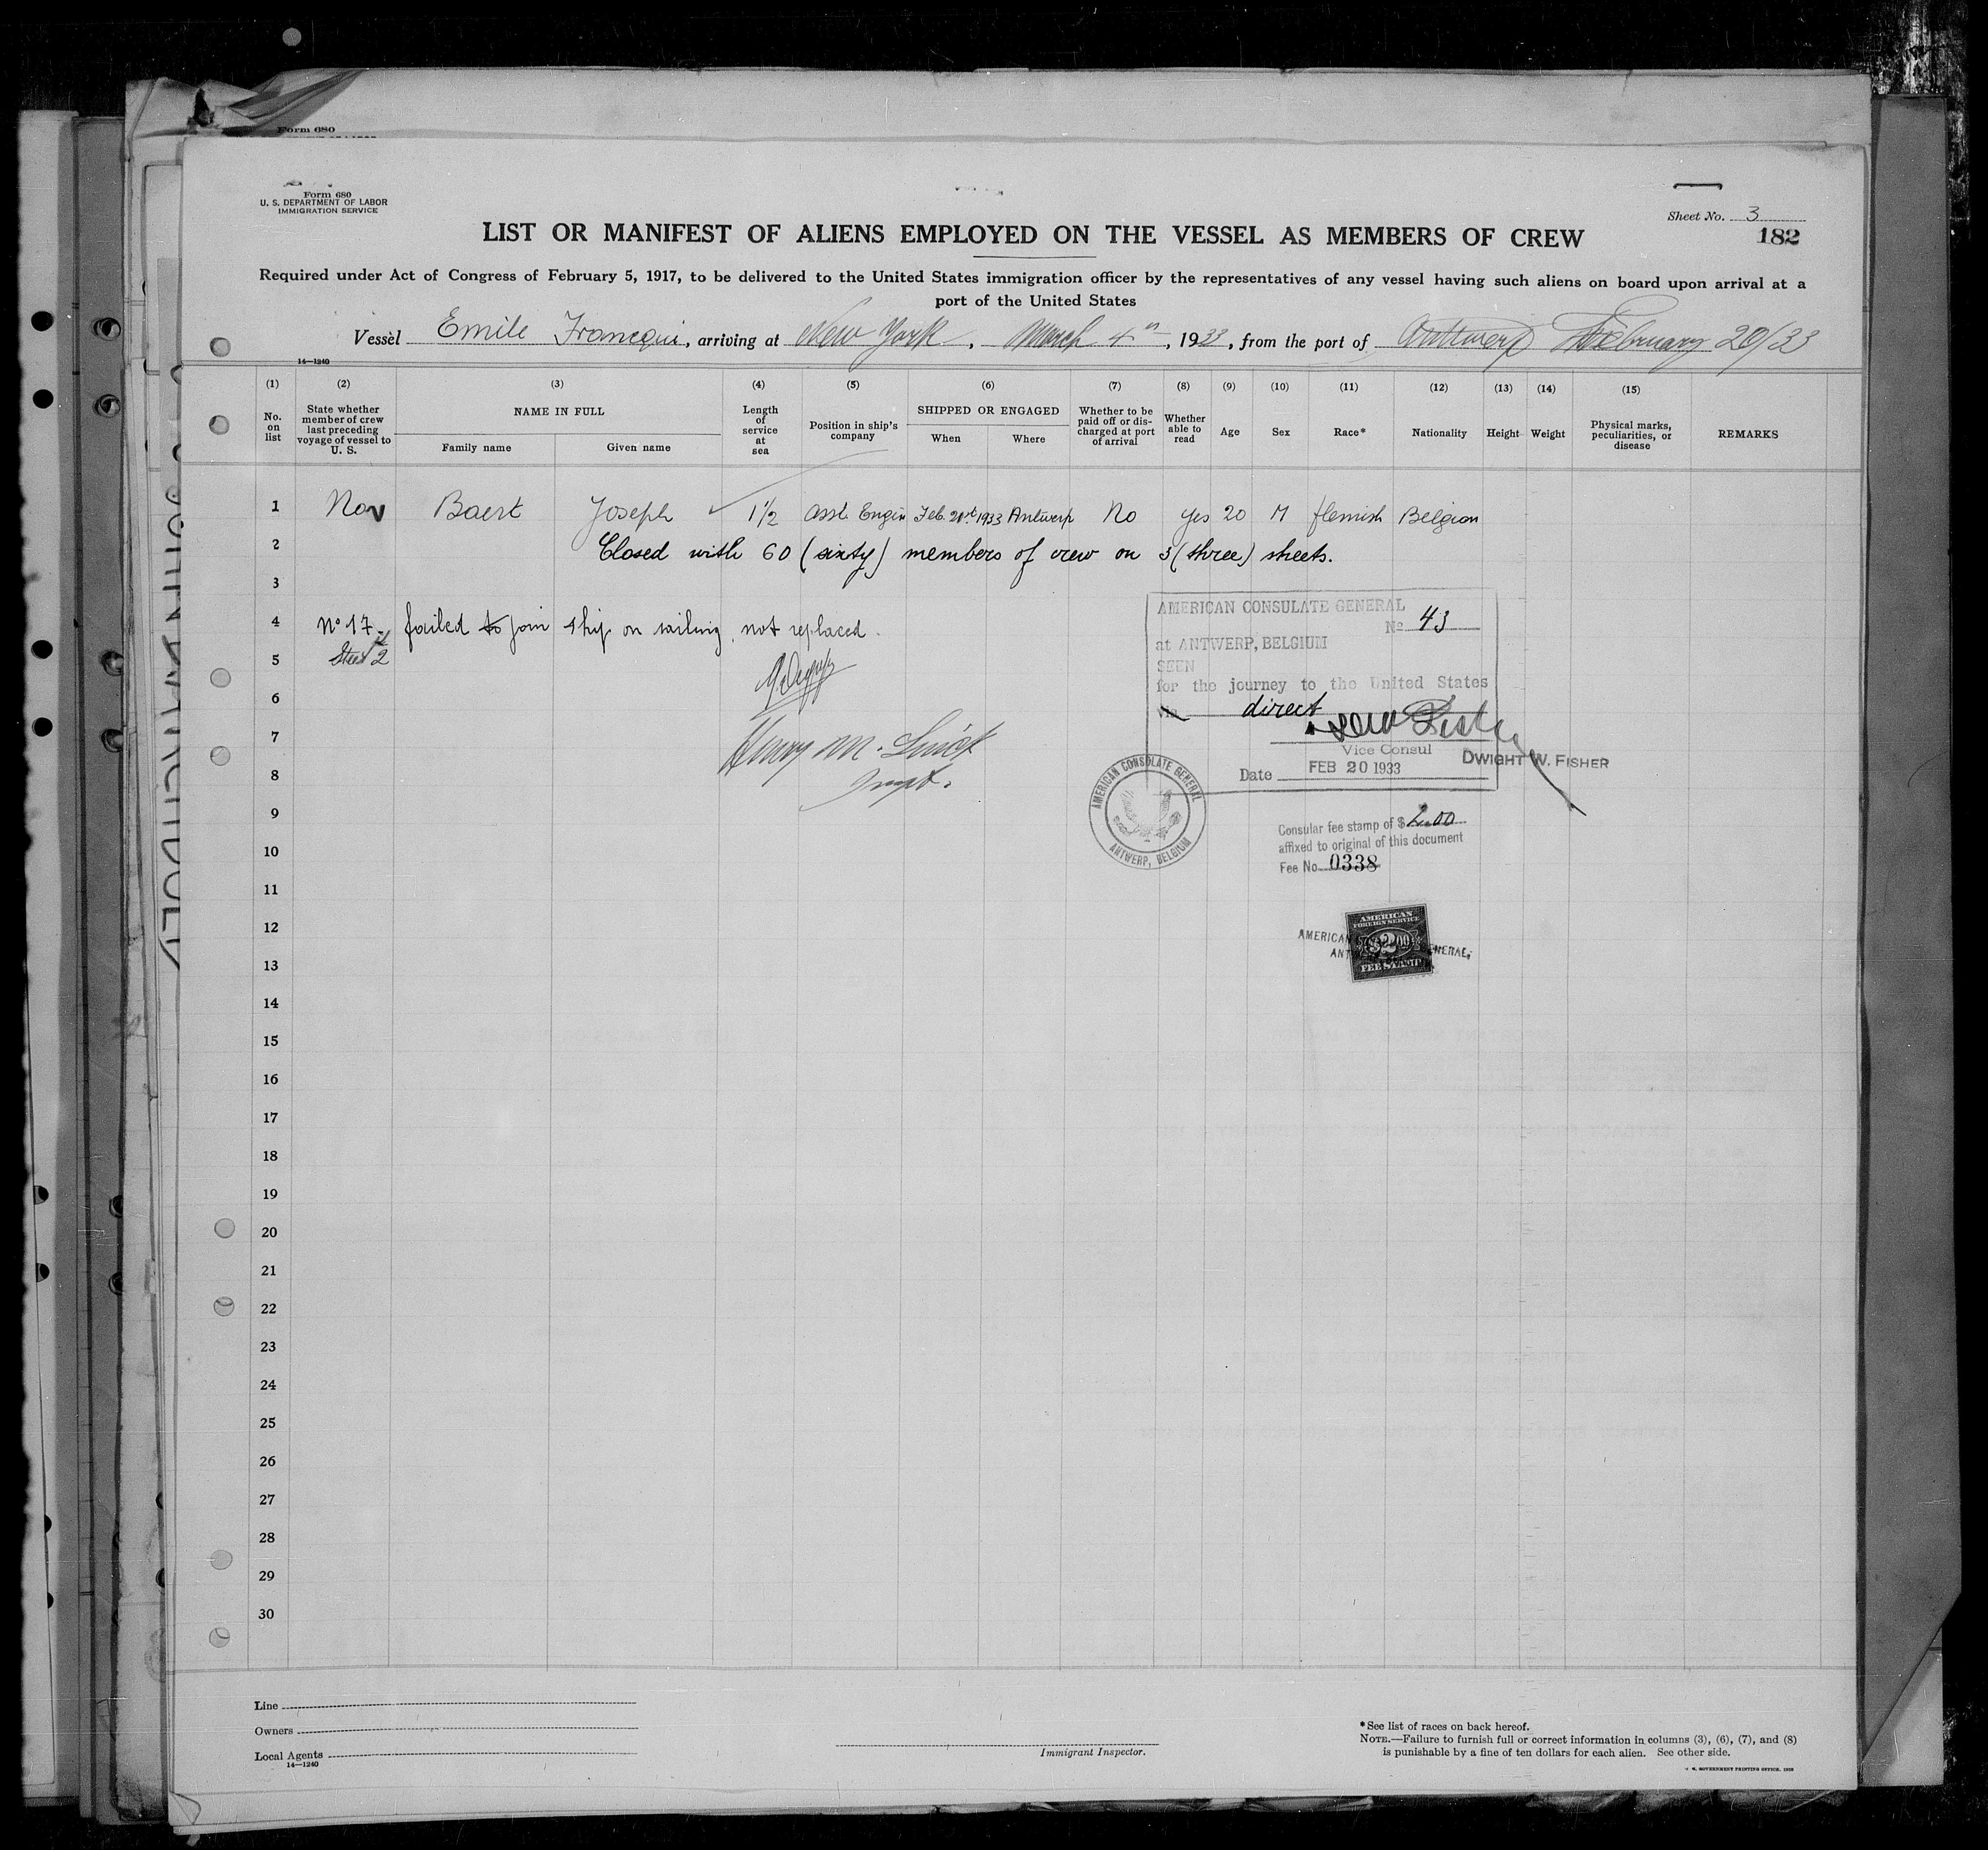 Form 680
Form 680
U. S. DEPARTMENT OF LABOR
IMMIGRATION SERVICE
Sheet No. 3
182
LIST OR MANIFEST OF ALIENS EMPLOYED ON THE VESSEL AS MEMBERS OF CREW
Required under Act of Congress of February 5, 1917, to be delivered to the United States immigration officer by the representatives of any vessel having such aliens on board upon arrival at a
port of the United States
Vessel Emile Francqui, arriving at New York, March 4th, 1933, from the port of Antwerp February 20/33
14—1240
(1) (2) (3) (4) (5) (6) (7) (8) (9) (10) (11) (12) (13) (14) (15)
No. on list
State whether member of crew last preceding voyage of vessel to U. S.
NAME IN FULL
Family name
Given name
Length of service at sea
Position in ship's company
SHIPPED OR ENGAGED
When
Where
Whether to be paid off or discharged at port of arrival
Whether able to read
Age
Sex
Race*
Nationality
Height
Weight
Physical marks, peculiarities, or disease
REMARKS
1 No Baert Joseph 1½ Asst. Engin Feb. 1933 Antwerp No Yes 20 M flemish Belgian
2 Closed with 60 (sixty) members of crew on 3 (three) sheets.
3
4 No 17 failed to join ship on sailing, not replaced.
5 Sheet 2
6
7 Henry M.
8 Inspt.
9
10
11
12
13
14
15
16
17
18
19
20
21
22
23
24
25
26
27
28
29
30
AMERICAN CONSULATE GENERAL
No 43
at ANTWERP, BELGIUM
SEEN
for the journey to the United States
via direct
Vice Consul
DWIGHT W. FISHER
Date FEB 20 1933
AMERICAN CONSULATE GENERAL
ANTWERP, BELGIUM
Consular fee stamp of $ 2.00
affixed to original of this document
Fee No. 0338
AMERICAN
FOREIGN SERVICE
$2.00
FEE STAMP
Line
Owners
Local Agents
14—1240
Immigrant Inspector.
*See list of races on back hereof.
NOTE.—Failure to furnish full or correct information in columns (3), (6), (7), and (8)
is punishable by a fine of ten dollars for each alien. See other side.